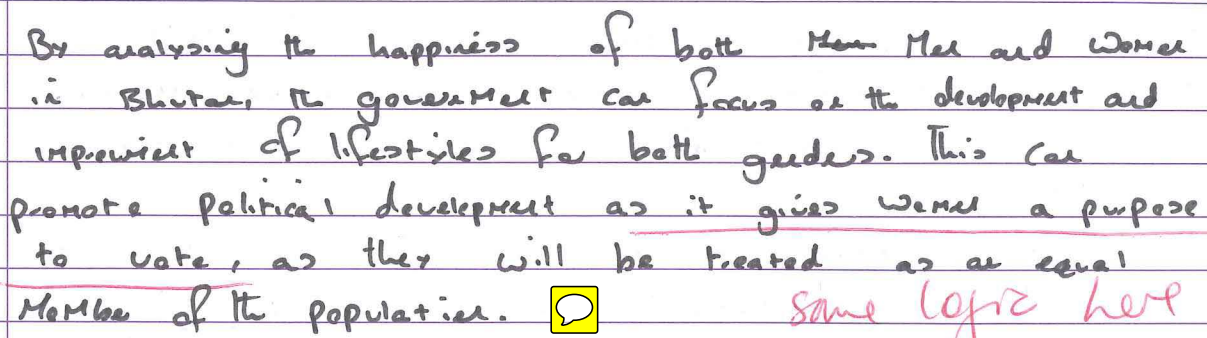 By analysing the happiness of both Men Men and Women
in Bhutan, the government can focus on the development and
improvment of lifestyles for both genders. This can
promote political development as it gives women a purpose
to vote, as they will be treated as an equal
Member of the population.
some logic here